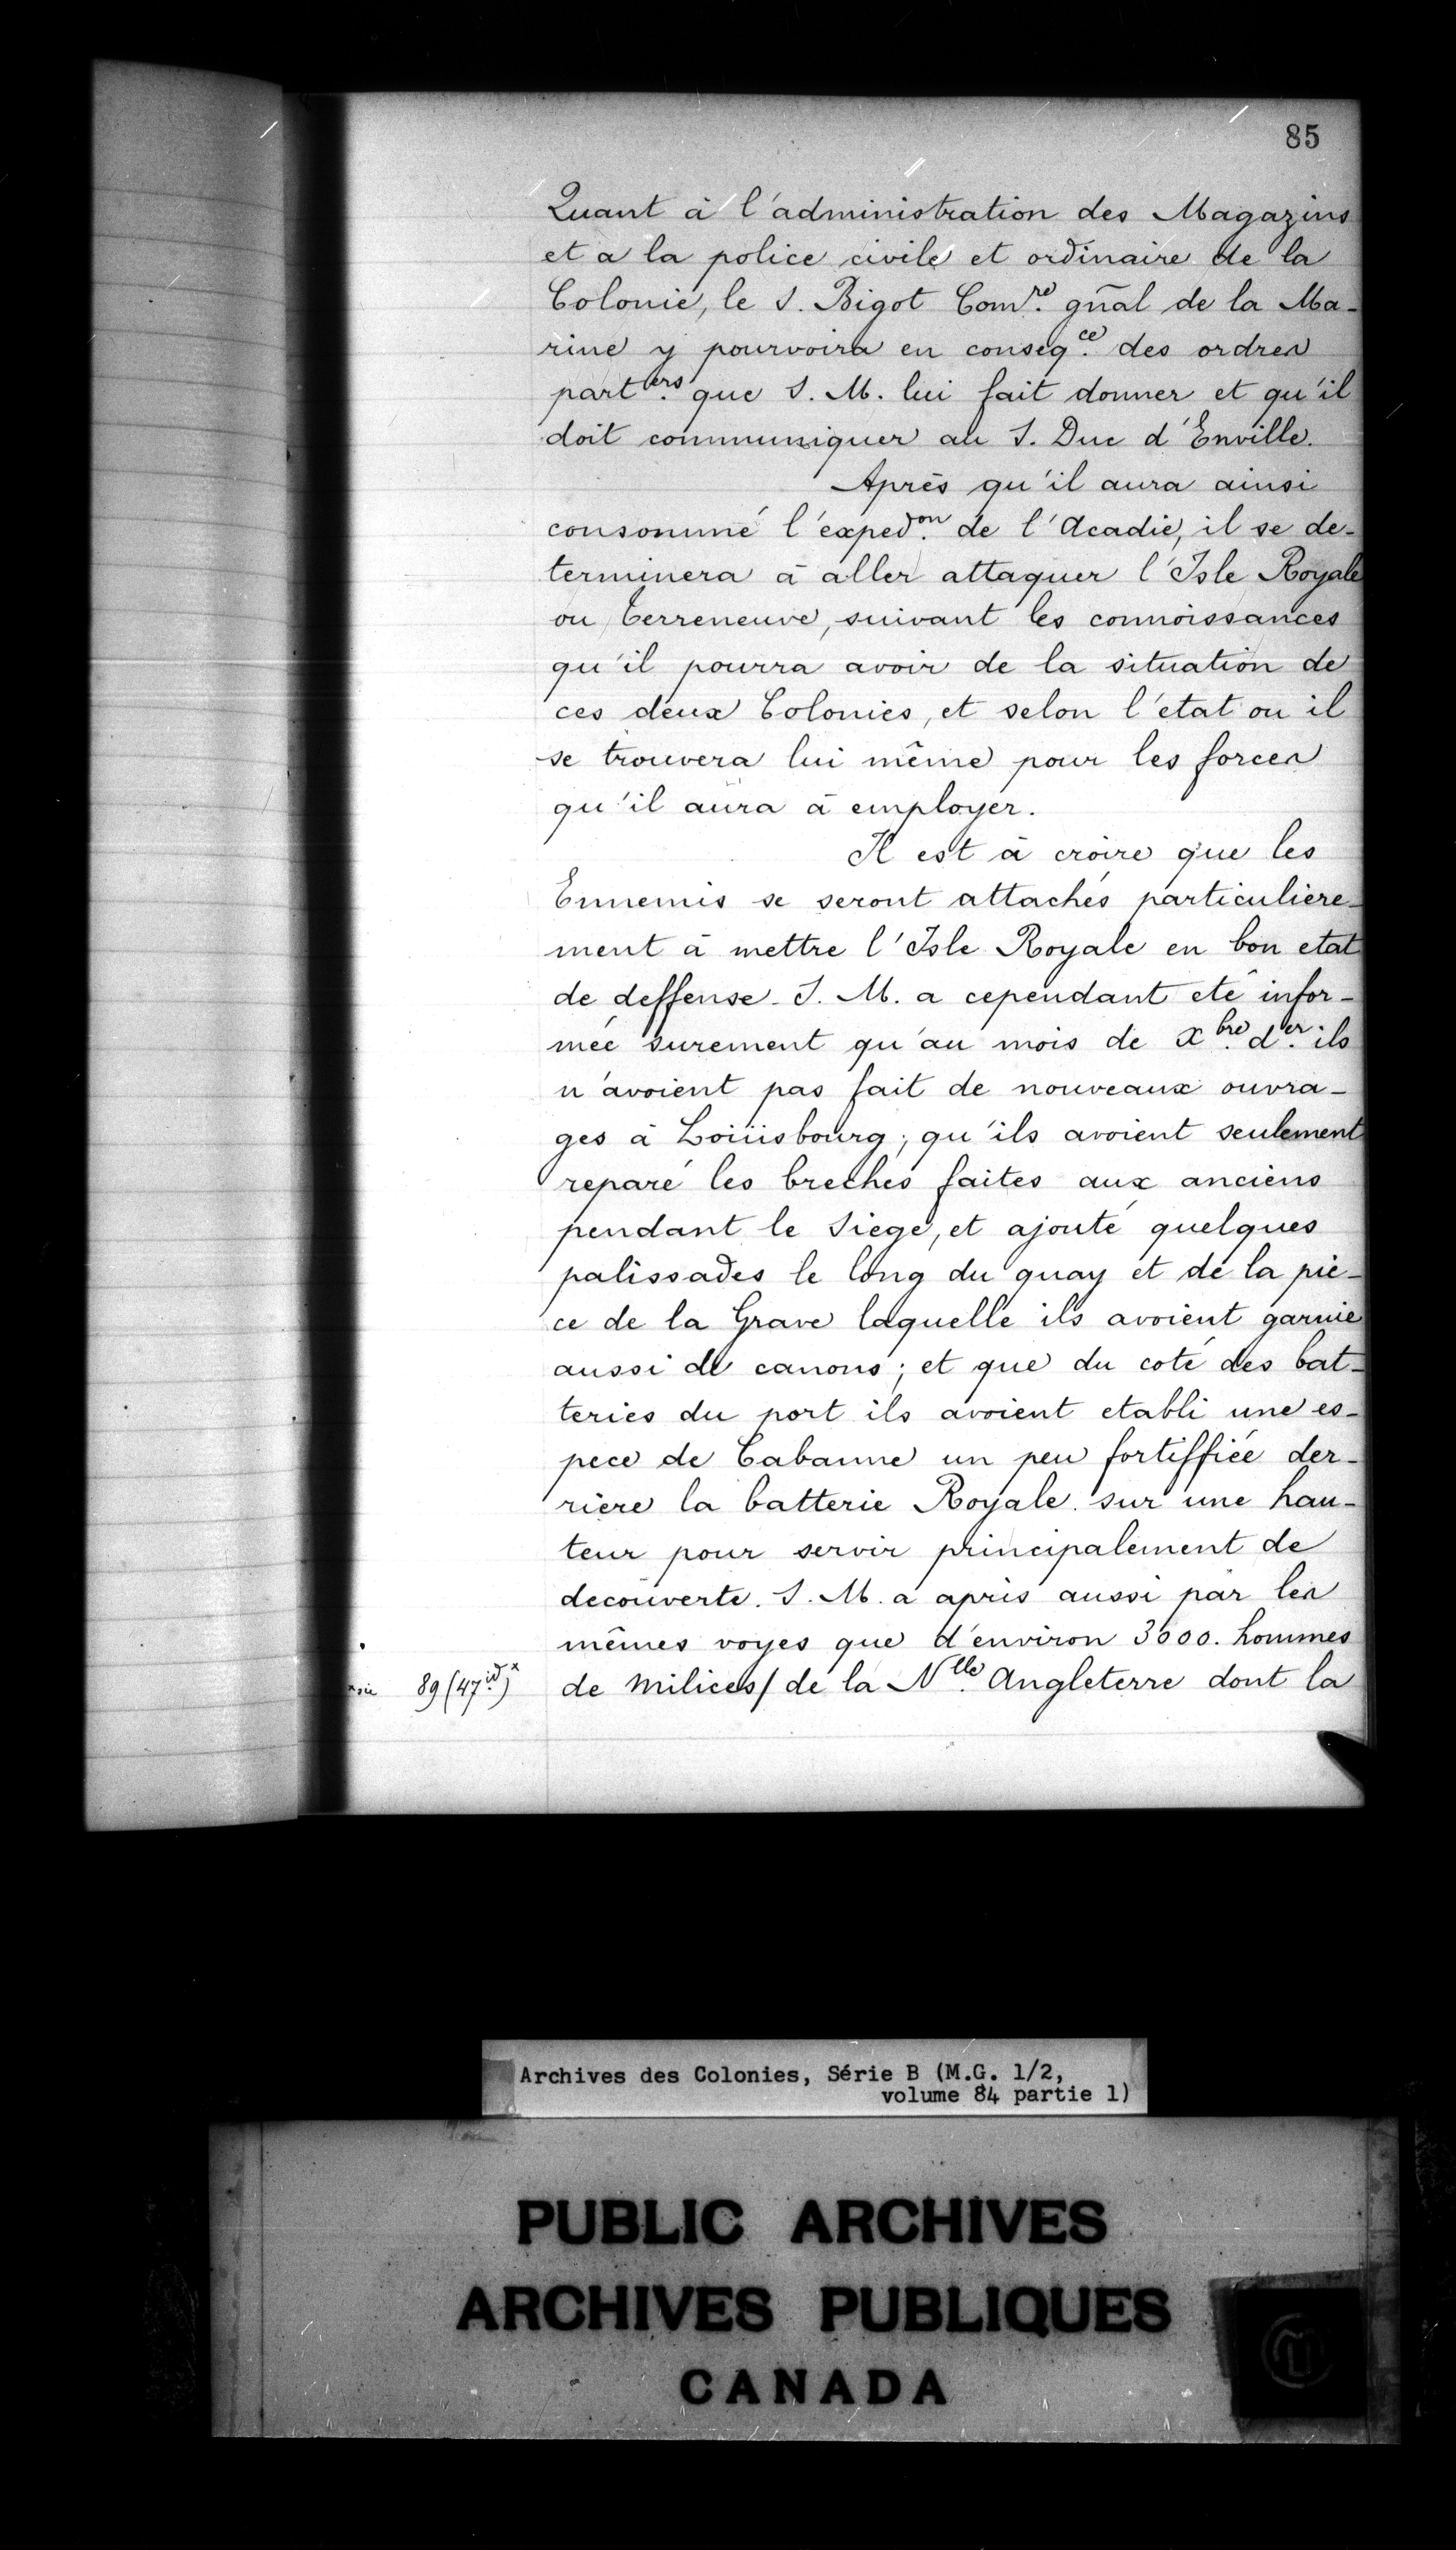 85
Quant à l'administration des Magazins
et a la police civile et ordinaire de la
Colonie, le S. Bigot Com.re gñal de la Ma-
rine y pourvoira en conseq.ce des ordres
part.ers que S. M. lui fait donner et qu'il
doit communiquer au S. Duc d'Enville.
Après qu'il aura ainsi
consommé l'exped.on de l'Acadie, il se de-
terminera à aller attaquer l'Isle Royale
ou Terreneuve, suivant les connoissances
qu'il pourra avoir de la situation de
ces deux Colonies, et selon l'etat ou il
se trouvera lui même pour les forces
qu'il aura à employer.
Il est à croire que les
Ennemis se seront attachés particuliere-
ment à mettre l'Isle Royale en bon etat
de deffense. S. M. a cependant eté infor-
mée surement qu'au mois de X.bre d.er ils
n'avoient pas fait de nouveaux ouvra-
ges à Loüisbourg; qu'ils avoient seulement
reparé les breches faites aux anciens
pendant le Siege, et ajouté quelques
palissades le long du quay et de la pie-
ce de la Grave laquelle ils avoient garnie
aussi de canons; et que du coté des bat-
teries du port ils avoient etabli une es-
pece de Cabanne un peu fortiffiée der-
riere la batterie Royale sur une hau-
teur pour servir principalement de
decouverte. S. M. a apris aussi par les
mêmes voyes que d'environ 3000. hommes
89 (47.id)x de milices/ de la N.lle Angleterre dont la
Archives des Colonies, Série B (M.G. 1/2,
volume 84 partie 1)
PUBLIC ARCHIVES
ARCHIVES PUBLIQUES
CANADA